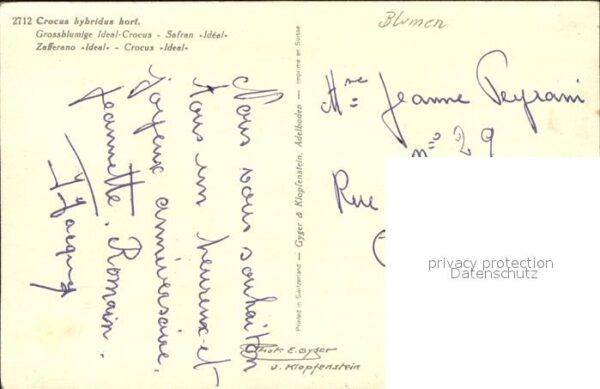 2712 Crocus hybridus hort.
Grossblumige Ideal-Crocus - Safran «Idéal»
Zafferano «Ideal» - Crocus «Ideal»
Blumen
Nous vous souhaiton
tous un heureux et
joyeux anniversaire.
Jeannette. Romain.
Jacquy
Printed in Switzerland — Gyger & Klopfenstein, Adelboden — Imprimé en Suisse
Mme Jeanne Peyrani
n° 29
Rue
privacy protection
Datenschutz
Phot. E. Gyger
J. Klopfenstein